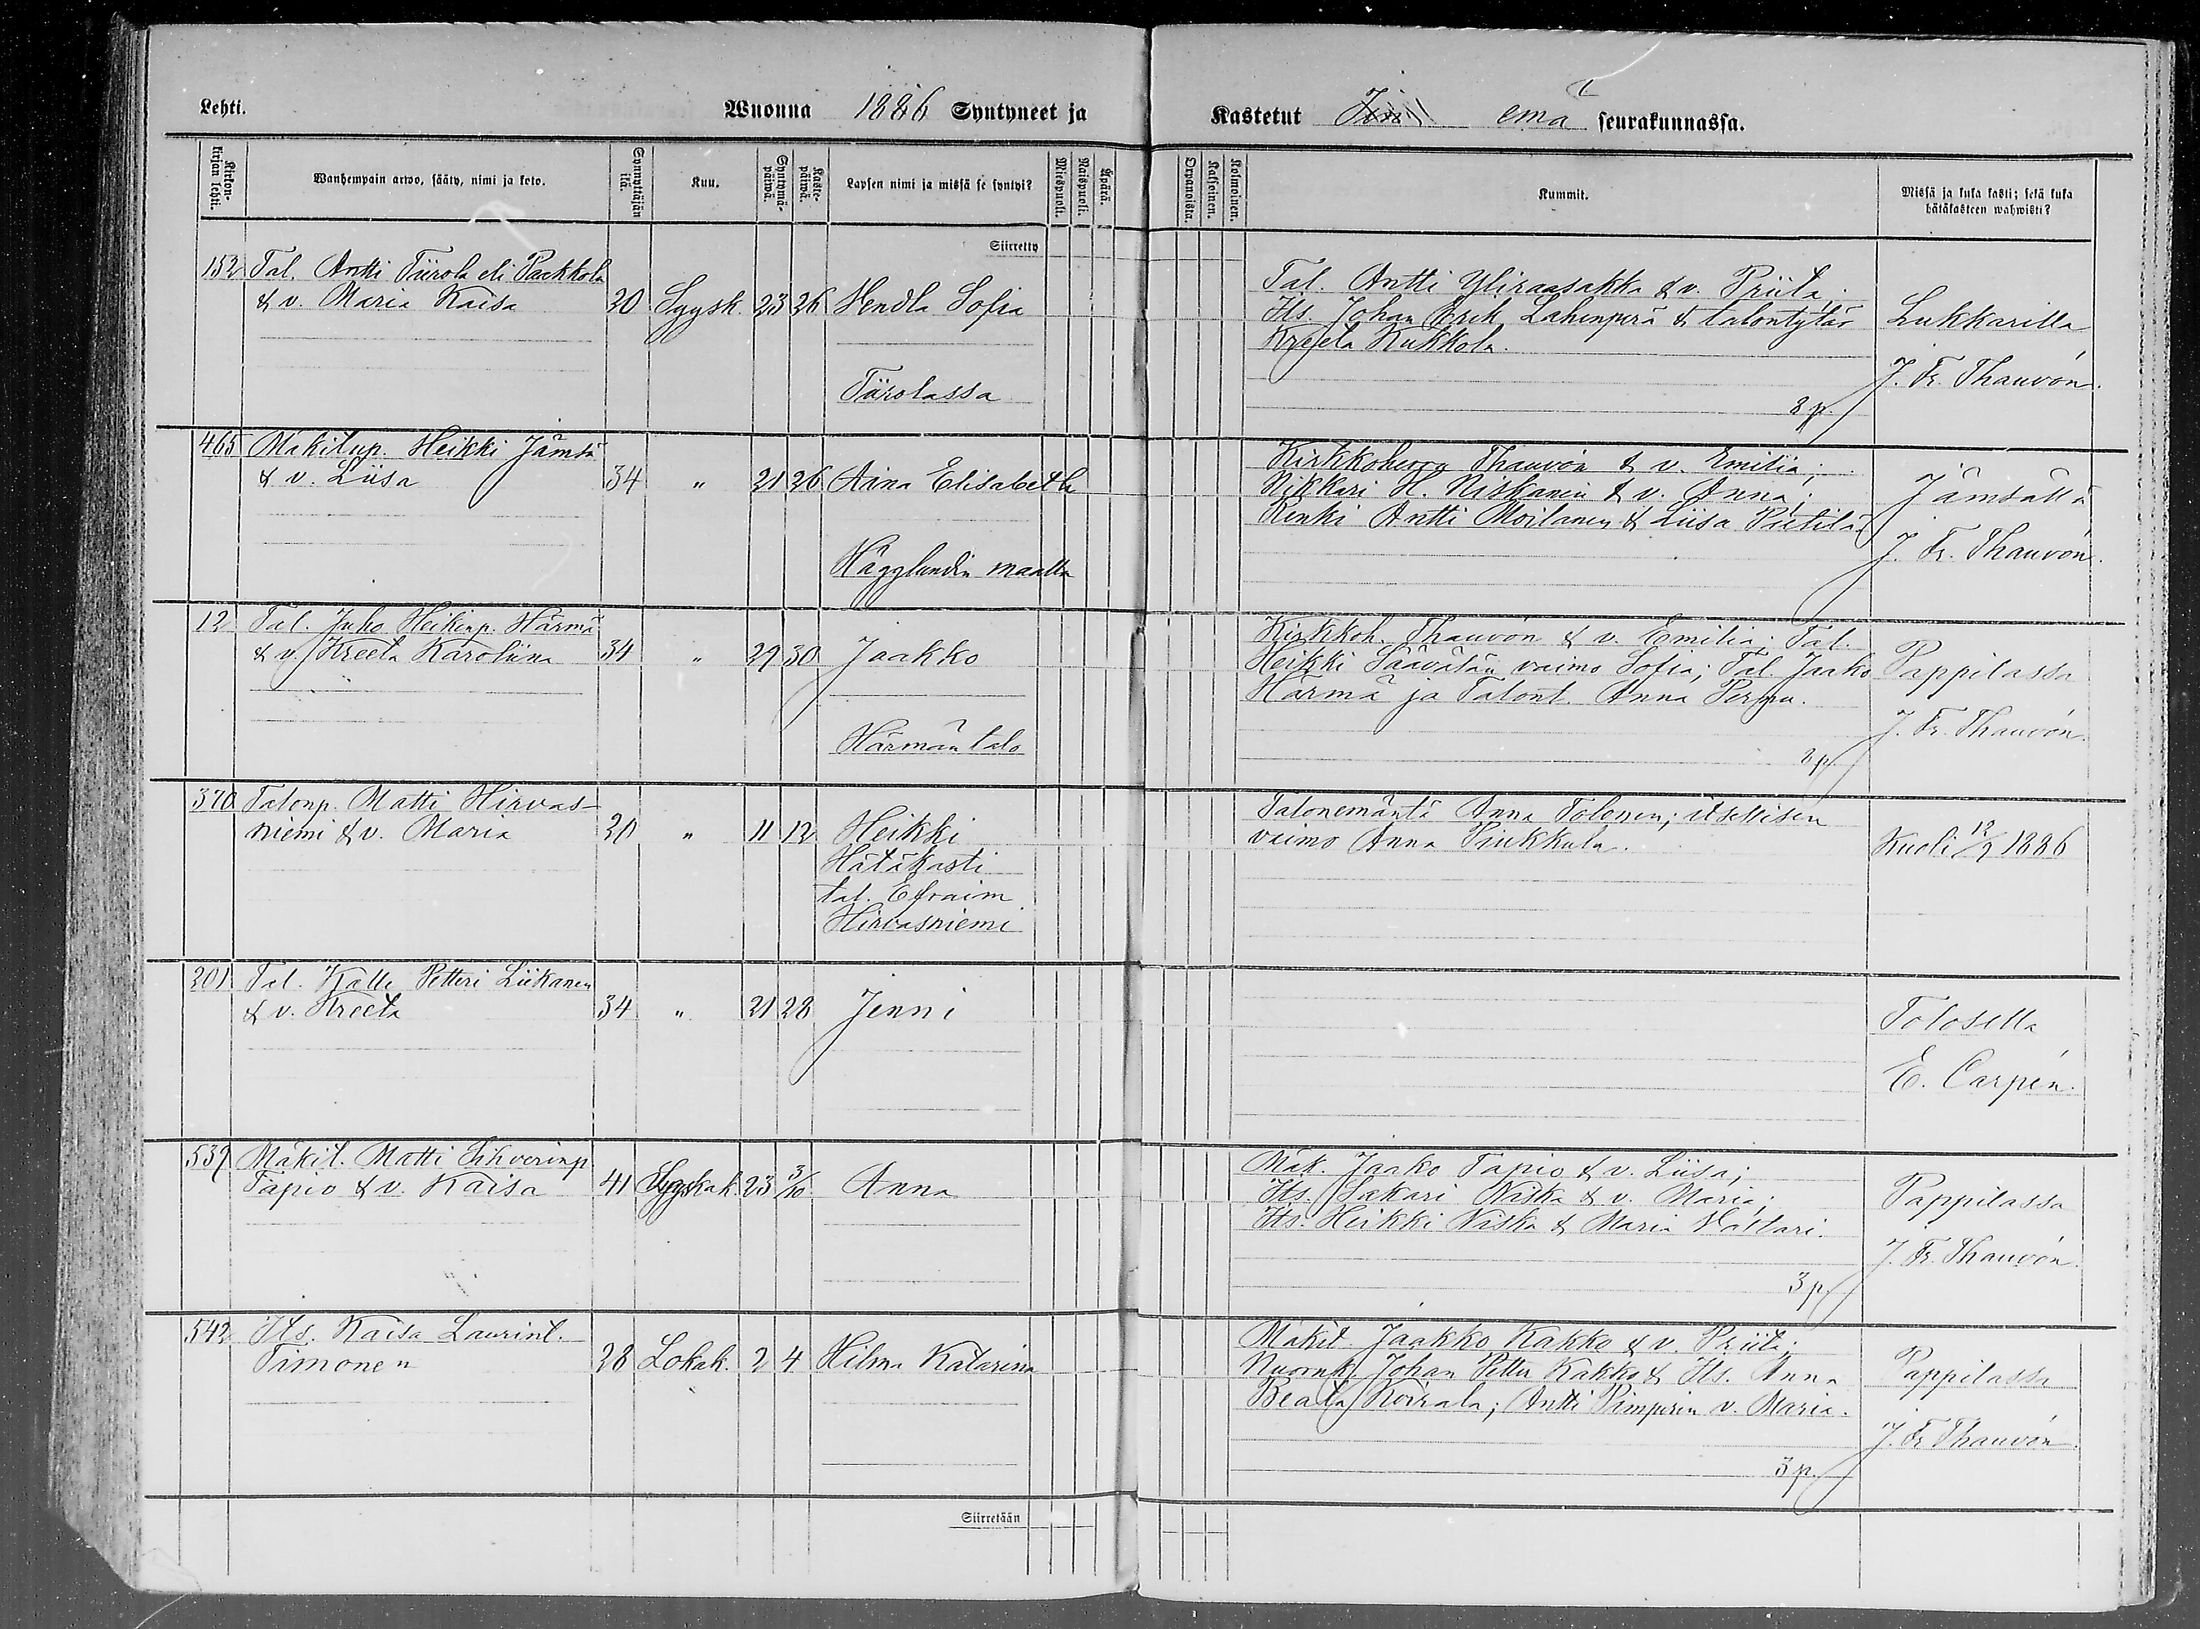 Lehti.
Wuonna 1886 Syntyneet ja
Kastetut Iin emä seurakunnassa.
Kirkon-kirjan lehti.
Wanhempain arwo, sääty, nimi ja koto.
Synnyttäjän ikä.
Kuu.
Syntymä-päiwä.
Kaste-päiwä.
Lapsen nimi ja missä se syntyi?
Miespuoli.
Naispuoli.
Äpärä.
Orpanoista.
Kaksoinen.
Kolmoinen.
Kummit.
Missä ja kuka kasti; sekä kuka
hätäkasteen wahwisti?
Siirretty
152 Tal. Antti Tiirola eli Paakkola
& v. Maria Kaisa 20 Syysk. 23 26 Hendla Sofia
Tiirolassa
Tal. Antti Yliraasakka & v. Priita;
Its. Johan Erik Lahenperä & talontytär
Kreeta Kukkola.
3 p.
Lukkarilla
J. Fr. Thauvón.
465 Mäkitup. Heikki Jämsä
& v. Liisa 34 " 21 26 Aina Elisabeth
Hägglundin maalla
Kirkkoherra Thauvón & v. Emilia;
Nikkari H. Niskanen & v. Anna;
Renki Antti Moilanen & Liisa Pietilä
Jämsällä
J. Fr. Thauvón.
12 Tal. Juho Heikinp. Härmä
& v. Kreeta Karoliina 34 " 29 30 Jaakko
Härmäntalo
Kirkkoh. Thauvón & v. Emilia; Tal.
Heikki Säävälän vaimo Sofia; Tal. Jaako
Härmä ja Talont. Anna Perppu.
3 p.
Pappilassa
J. Fr. Thauvón.
370 Talonp. Matti Hirvas-
niemi & v. Maria 20 " 11 12 Heikki
Hätäkasti
tal. Efraim
Hirvasniemi
Talonemäntä Anna Tolonen; itsellisen
vaimo Anna Hiukkala.
Kuoli 12/9 1886
201 Tal. Kalle Petteri Liikanen
& v. Kreeta 34 " 21 28 Jenni
Tolosella
E. Carpén.
539 Mäkit. Matti Sihverinp.
Tapio & v. Kaisa 41 Syyskuk. 23 3/10 Anna
Mäk. Jaako Tapio & v. Liisa;
Its. Sakari Niska & v. Maria;
Its. Heikki Niska & Maria Hättari.
3 p.
Pappilassa
J. Fr. Thauvón.
542 Its. Kaisa Laurint.
Timonen 28 Lokak. 2 4 Hilma Katarina
Mäkit. Jaakko Kakko & v. Priita;
Nuoruk. Johan Petter Kakko & Its. Anna
Beata Koirala; Antti Pimperin v. Maria.
3 p.
Pappilassa
J. Fr. Thauvón.
Siirretään